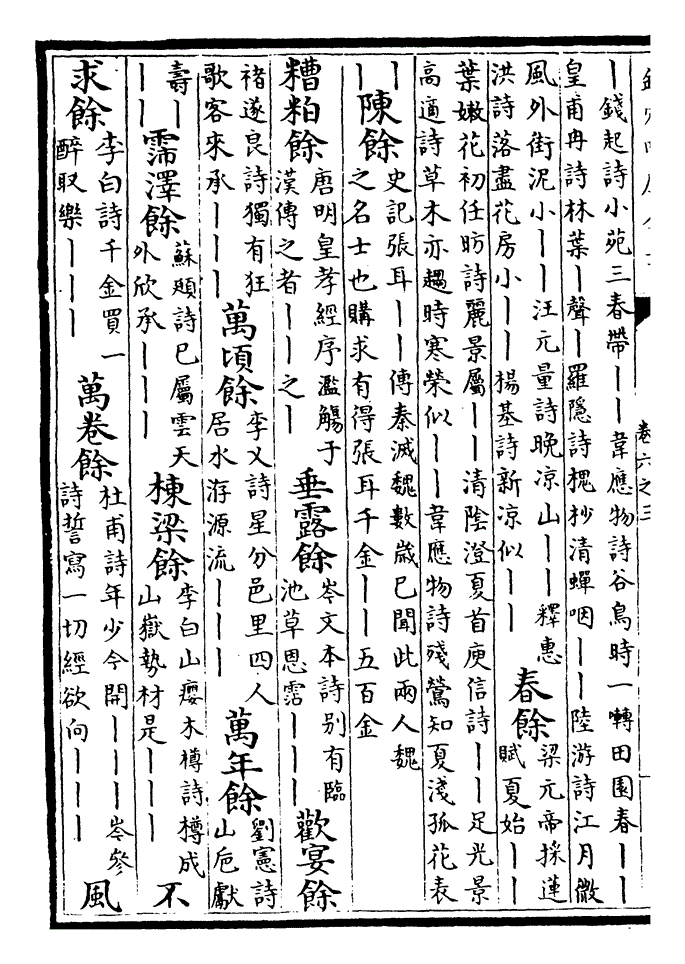 卷六之三
丨錢起詩小苑三春帶丨丨韋應物詩谷鳥時一囀田園春丨丨
皇甫冉詩林葉丨聲丨羅隱詩槐杪清蟬咽丨丨陸游詩江月微
風外街泥小丨丨汪元量詩晚涼山丨丨釋惠
洪詩落盡花房小丨丨楊基詩新涼似丨丨
春餘
梁元帝採蓮
賦夏始丨丨
葉嫩花初任昉詩麗景屬丨丨清陰澄夏首庾信詩丨丨足光景
高適詩草木亦趨時寒榮似丨丨韋應物詩殘鶯知夏淺孤花表
丨丨
陳餘
史記張耳丨丨傳秦滅魏數歲已聞此兩人魏
之名士也購求有得張耳千金丨丨五百金
糟粕餘
唐明皇孝經序濫觴于
漢傳之者丨丨之丨
垂露餘
岑文本詩别有臨
池草恩霑丨丨丨
歡宴餘
褚遂良詩獨有狂
歌客來承丨丨丨
萬頃餘
李乂詩星分邑里四人
居水游源流丨丨丨
萬年餘
劉憲詩
山巵獻
壽丨
丨丨
霈澤餘
蘇頲詩已屬雲天
外欣承丨丨丨
棟梁餘
李白山癭木樽詩樽成
山嶽勢材是丨丨丨
不
求餘
李白詩千金買一
醉取樂丨丨丨
萬卷餘
杜甫詩年少今開丨丨丨岑參
詩誓寫一切經欲向丨丨丨
風